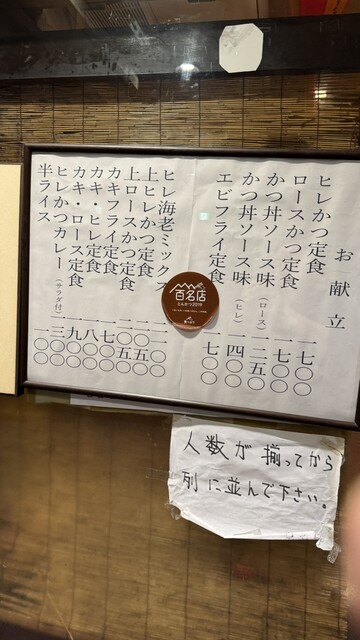 お献立
ヒレかつ定食 一七〇〇
ロースかつ定食 一七〇〇
かつ丼ソース味(ロース) 一二五〇
かつ丼ソース味(ヒレ) 一四〇〇
エビフライ定食 一七〇〇
ヒレ海老ミックス
上ヒレかつ定食
上ロースかつ定食
カキフライ定食
カキ・ヒレ定食
カキ・ロース定食
ヒレかつカレー(サラダ付)
半ライス
百名店
とんかつ2019
人数が揃ってから
列に並んで下さい。